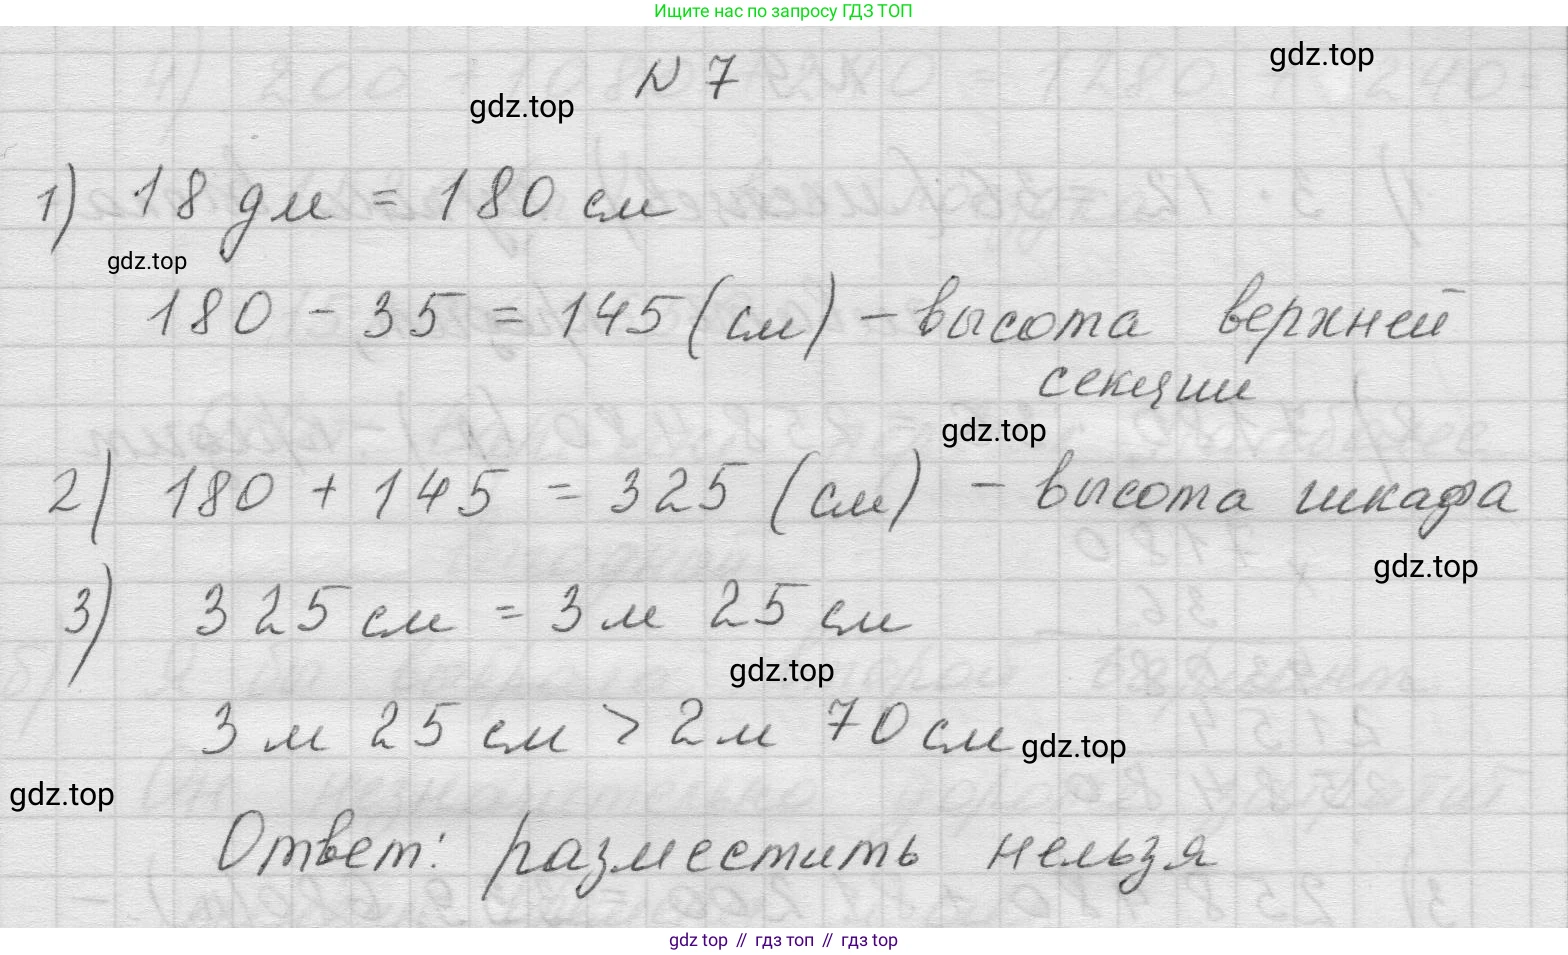 Ищите нас по запросу ГДЗ ТОП
gdz.top
N 7
gdz.top
1) 18 дм = 180 см
gdz.top
180 - 35 = 145 (см) - высота верхней
секции
gdz.top
2) 180 + 145 = 325 (см) - высота шкафа
gdz.top
3) 325 см = 3 м 25 см
gdz.top
3 м 25 см > 2 м 70 см
gdz.top
gdz.top
Ответ: разместить нельзя
gdz top // гдз топ // гдз top